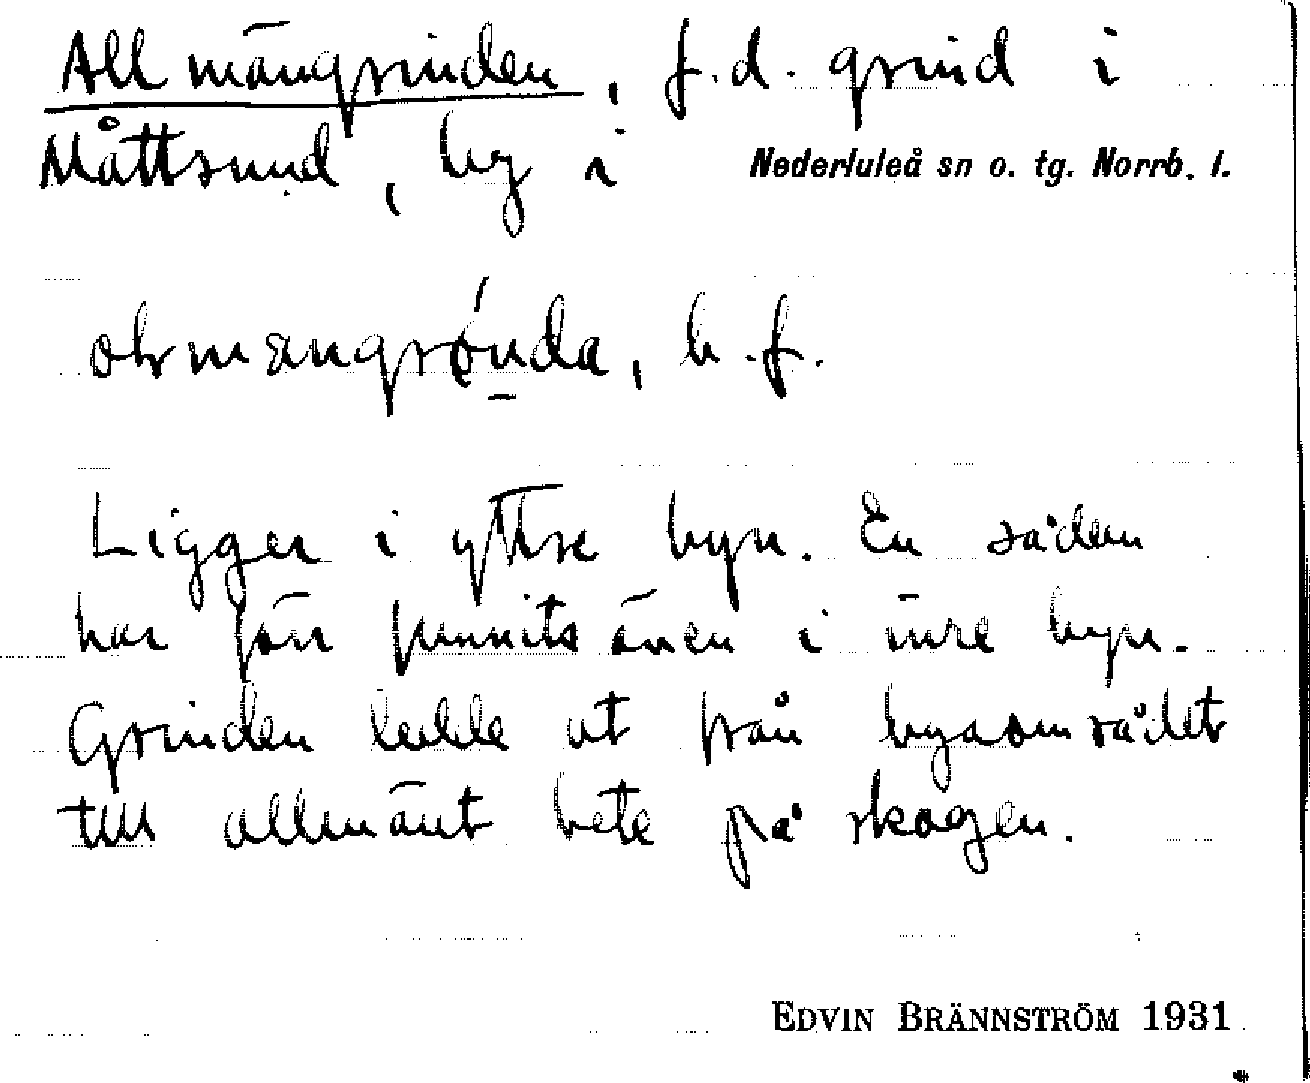 Allmängrinden, f.d. grind i
Måttsund, by i Nederluleå sn o. tg. Norrb. l.
b.f.
Ligger i yttre byn. En sådan
har förr funnits även i inre byn.
Grinden ledde ut från byaområdet
till allmänt bete på skogen.
EDVIN BRÄNNSTRÖM 1931